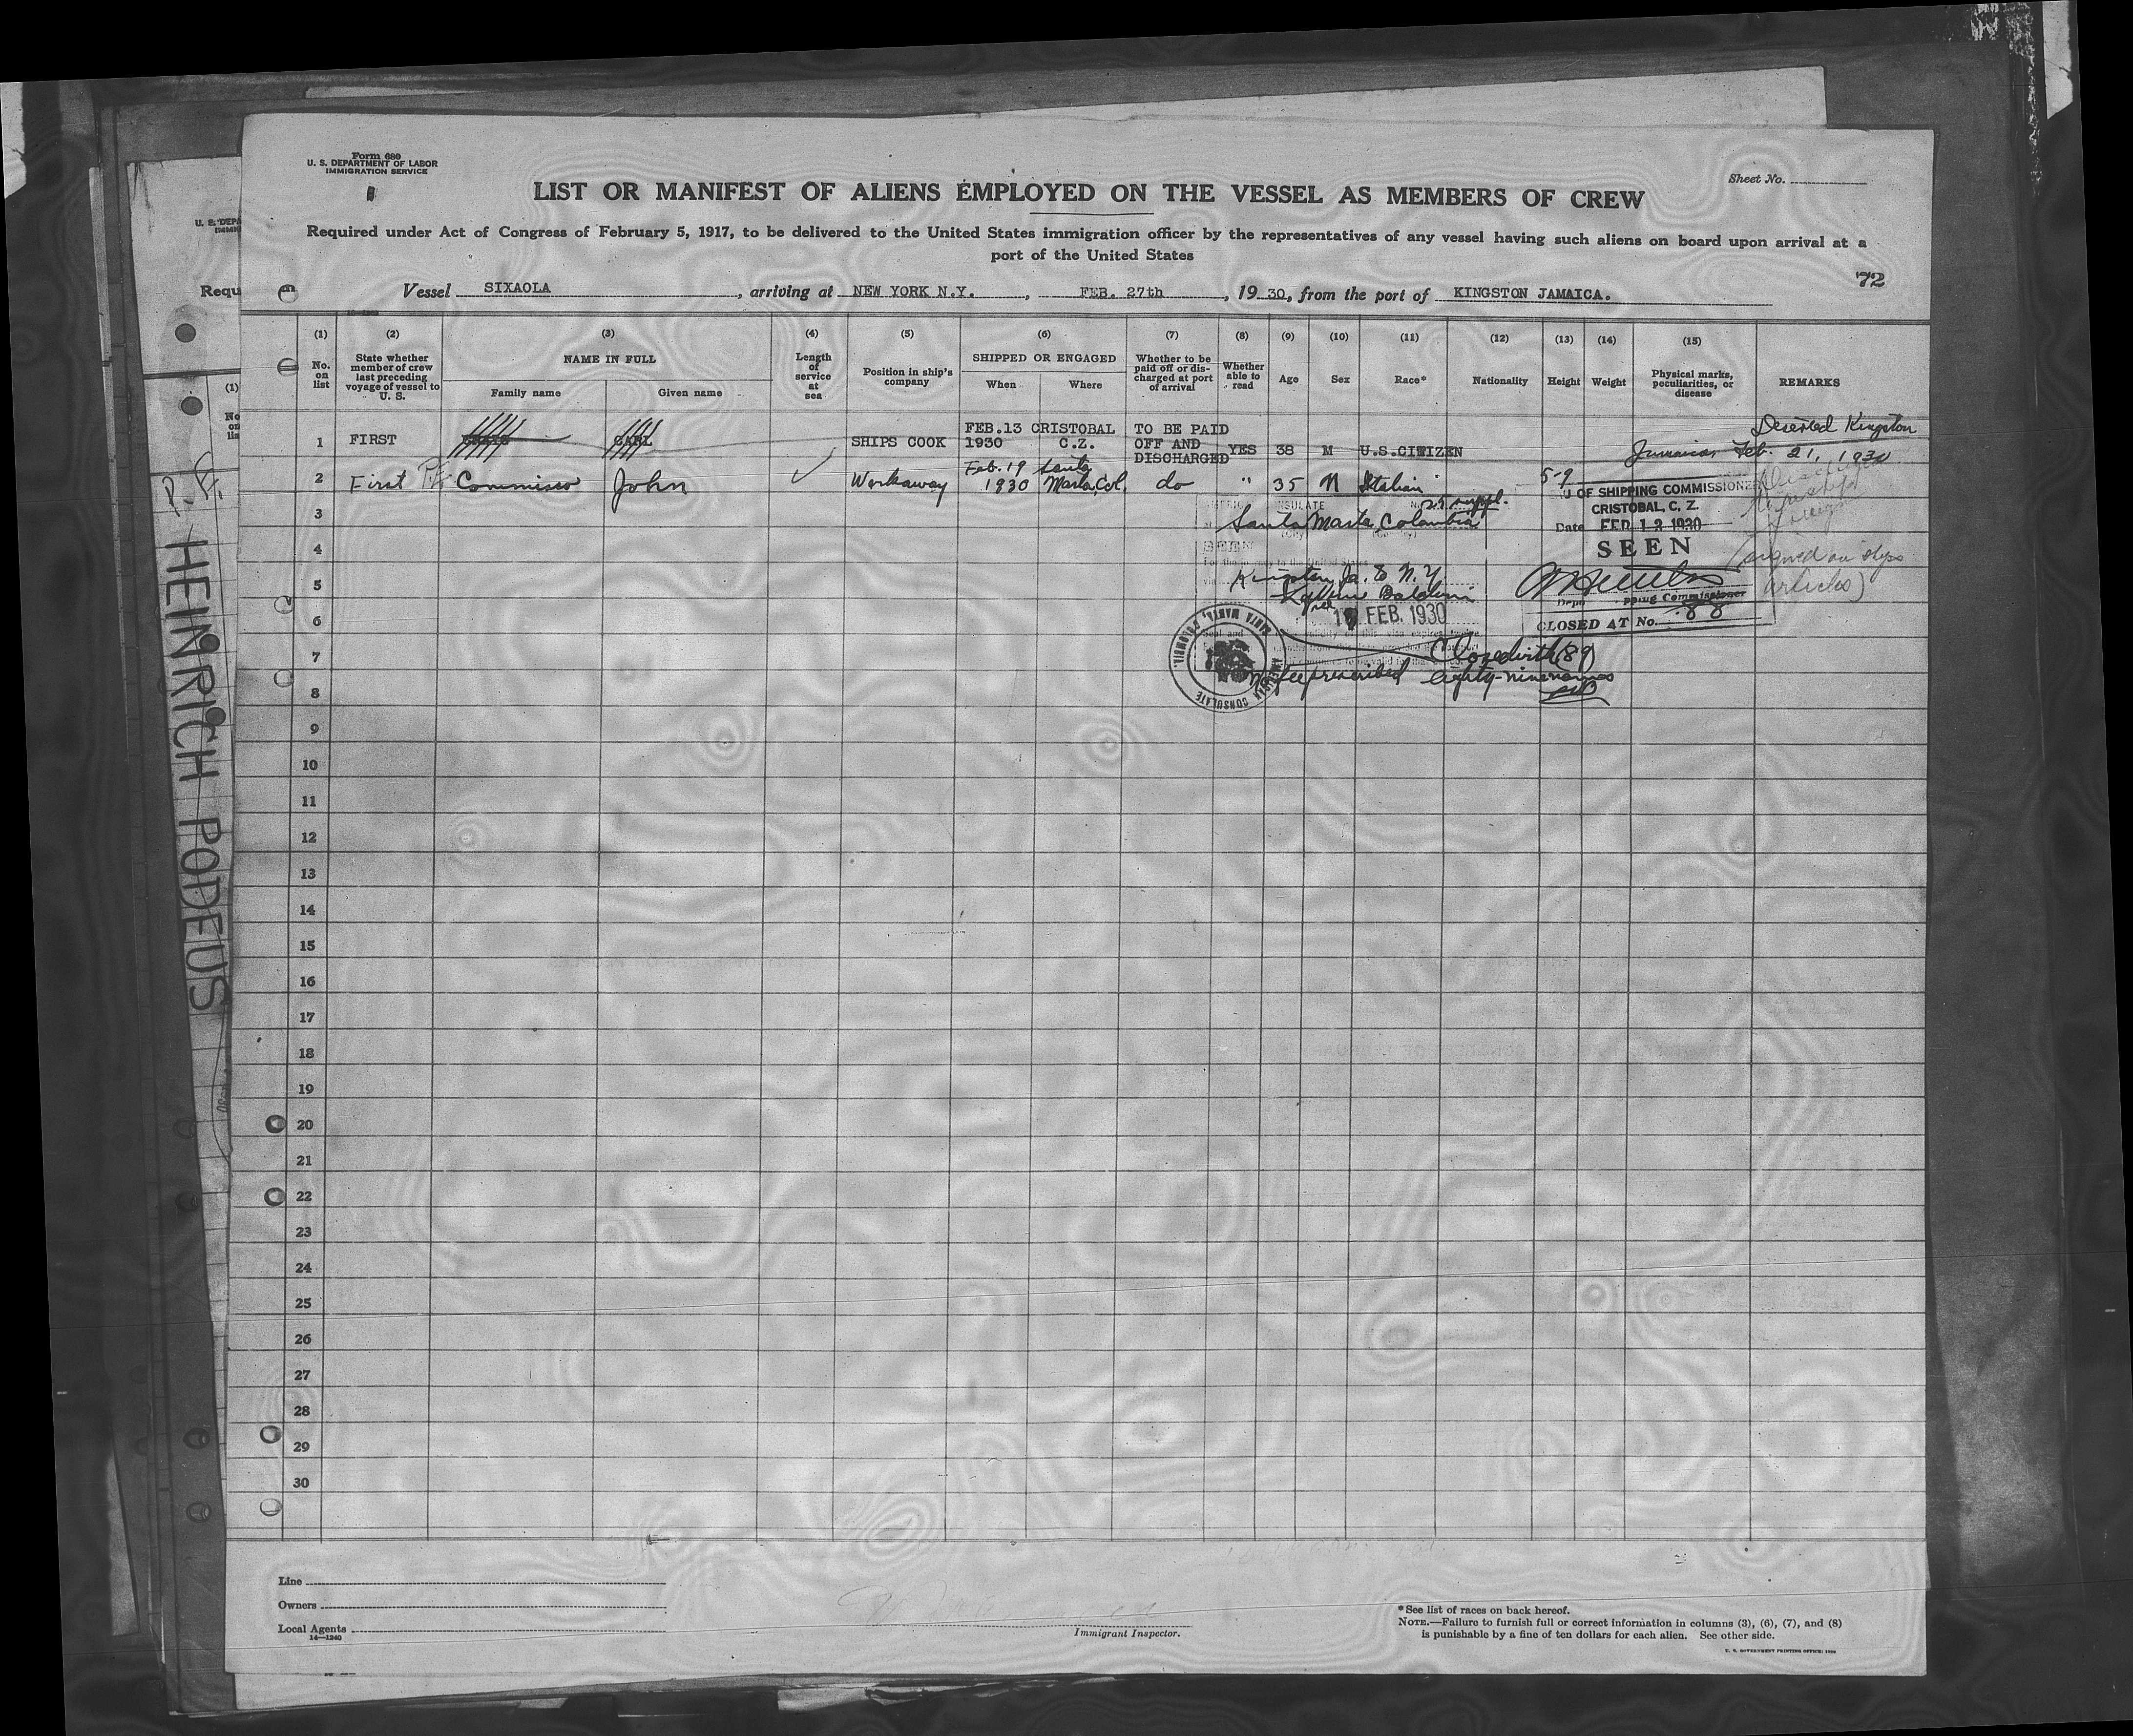 Form 680
U. S. DEPARTMENT OF LABOR
IMMIGRATION SERVICE
Sheet No.
LIST OR MANIFEST OF ALIENS EMPLOYED ON THE VESSEL AS MEMBERS OF CREW
Required under Act of Congress of February 5, 1917, to be delivered to the United States immigration officer by the representatives of any vessel having such aliens on board upon arrival at a
port of the United States
72
Vessel SIXAOLA, arriving at NEW YORK N.Y., FEB. 27th, 1930, from the port of KINGSTON JAMAICA.
(1) (2) (3) (4) (5) (6) (7) (8) (9) (10) (11) (12) (13) (14) (15)
No. on list
State whether member of crew last preceding voyage of vessel to U. S.
NAME IN FULL
Family name
Given name
Length of service at sea
Position in ship's company
SHIPPED OR ENGAGED
When
Where
Whether to be paid off or discharged at port of arrival
Whether able to read
Age
Sex
Race*
Nationality
Height
Weight
Physical marks, peculiarities, or disease
REMARKS
1 FIRST CARL SHIPS COOK FEB.13 1930 CRISTOBAL C.Z. TO BE PAID OFF AND DISCHARGED YES 38 M U.S.CITIZEN Deserted Kingston Jamaica Feb. 21, 1930
2 First P.F. Commisso John ✓ Workaway Feb. 19 1930 Santa Marta, Col. do " 35 M Italian 5-9
3
4
5
6
7
8
9
10
11
12
13
14
15
16
17
18
19
20
21
22
23
24
25
26
27
28
29
30
OF SHIPPING COMMISSIONER
CRISTOBAL, C. Z.
Date FEB 13 1930
SEEN
Shipping Commissioner
CLOSED AT No. 88
(signed on ships
articles)
Santa Marta, Colombia
SEEN
Kingston, Ja. & N.Y.
Baldwin
19 FEB. 1930
AMERICAN CONSULATE
SANTA MARTA, COLOMBIA
Closed with (89)
No fee prescribed eighty-nine names
Line
Owners
Local Agents
14—1240
Immigrant Inspector.
* See list of races on back hereof.
NOTE.—Failure to furnish full or correct information in columns (3), (6), (7), and (8)
is punishable by a fine of ten dollars for each alien. See other side.
U. S. GOVERNMENT PRINTING OFFICE
Requ
(1)
P. F. HEINRICH PODEUS